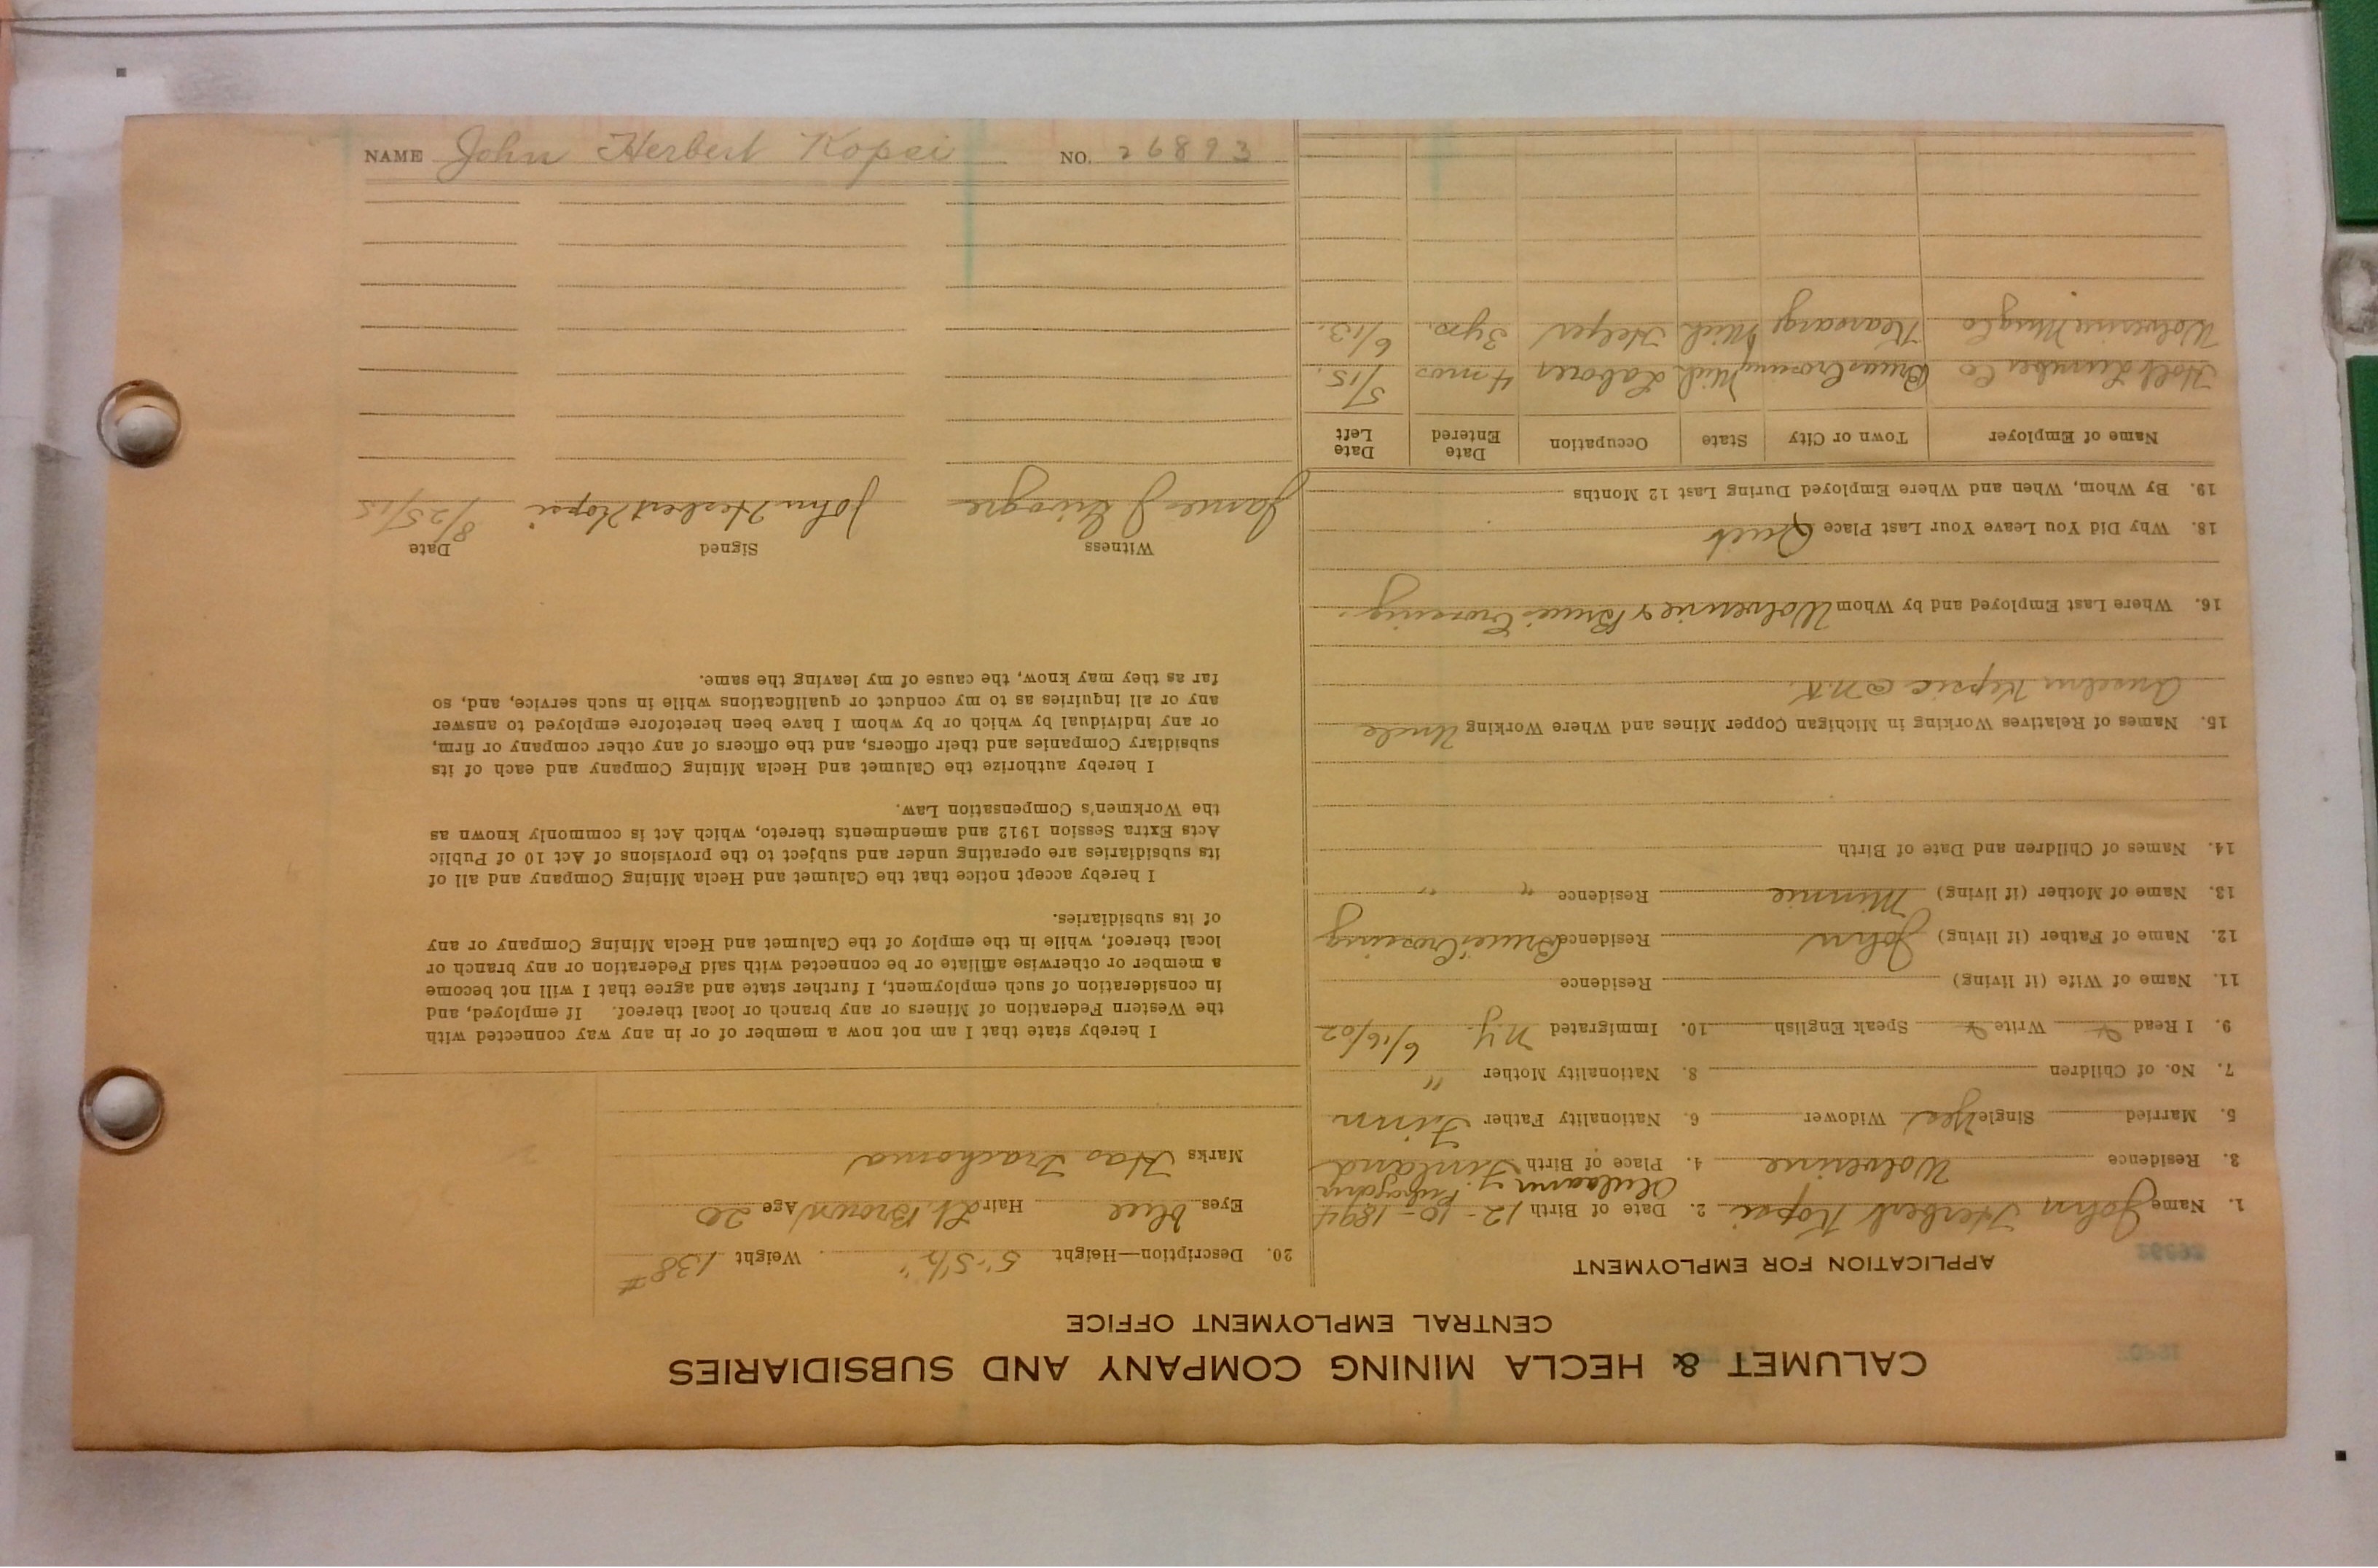 CALUMET & HECLA MINING COMPANY AND SUBSIDIARIES
CENTRAL EMPLOYMENT OFFICE
APPLICATION FOR EMPLOYMENT
1. Name John Herbert Kopsi 2. Date of Birth 12-10-1894
3. Residence Wolverine 4. Place of Birth Finland
5. Married Single Yes Widower 6. Nationality Father Finn
7. No. of Children 8. Nationality Mother "
9. I Read Write Speak English 10. Immigrated N.Y. 6/16/02
11. Name of Wife (if living) Residence
12. Name of Father (if living) John Residence Bruce Crossing
13. Name of Mother (if living) Minnie Residence " "
14. Names of Children and Date of Birth
15. Names of Relatives Working in Michigan Copper Mines and Where Working Uncle
16. Where Last Employed and by Whom Wolverine & Bruce Crossing.
18. Why Did You Leave Your Last Place Quit
19. By Whom, When and Where Employed During Last 12 Months
Name of Employer Town or City State Occupation Date Entered Date Left
Holt Lumber Co Bruce Crossing Mich Laborer 4 mos 5/15.
Wolverine Mng Co Kearsarge Mich Helper 3 yrs. 6/13.
20. Description—Height 5'-5½" Weight 138#
Eyes blue Hair Lt. Brown Age 20
Marks Has Trachoma
I hereby state that I am not now a member of or in any way connected with
the Western Federation of Miners or any branch or local thereof. If employed, and
in consideration of such employment, I further state and agree that I will not become
a member or otherwise affiliate or be connected with said Federation or any branch or
local thereof, while in the employ of the Calumet and Hecla Mining Company or any
of its subsidiaries.
I hereby accept notice that the Calumet and Hecla Mining Company and all of
its subsidiaries are operating under and subject to the provisions of Act 10 of Public
Acts Extra Session 1912 and amendments thereto, which Act is commonly known as
the Workmen's Compensation Law.
I hereby authorize the Calumet and Hecla Mining Company and each of its
subsidiary Companies and their officers, and the officers of any other company or firm,
or any individual by which or by whom I have been heretofore employed to answer
any or all inquiries as to my conduct or qualifications while in such service, and, so
far as they may know, the cause of my leaving the same.
Witness Signed Date
James J John Herbert Kopsi 8/25/15
NAME John Herbert Kopsi NO. 26893